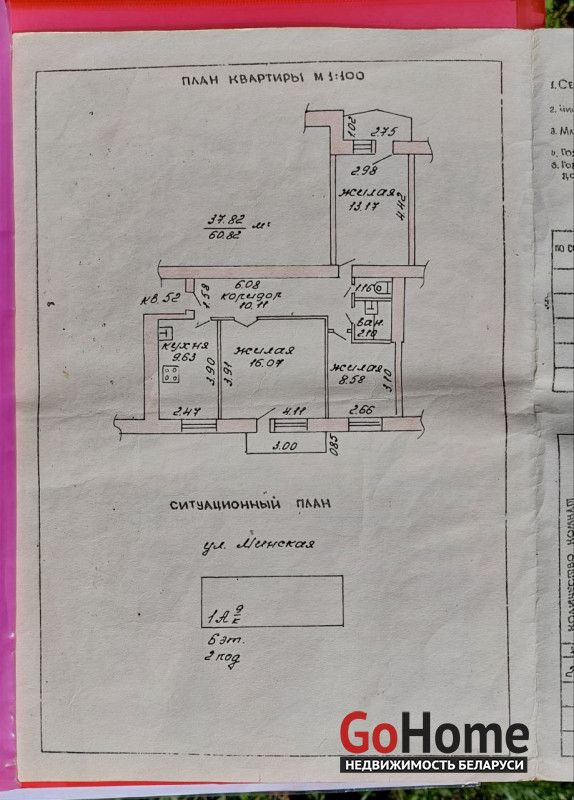 ПЛАН КВАРТИРЫ М 1:100
1.02
2.75
2.98
жилая
13.17
4.42
37.82
60.82
м²
6.08
коридор
10.11
1.58
кв. 52
1.16
ван.
2.10
кухня
9.63
3.90
2.47
жилая
16.07
3.91
4.11
жилая
8.58
3.10
2.66
3.00
085
СИТУАЦИОННЫЙ ПЛАН
ул. Минская
1А
6 эт.
2 под
1. СТ
2.
3.
4.
ПО
КОЛИЧЕСТВО КОМНАТ
GoHome
НЕДВИЖИМОСТЬ БЕЛАРУСИ